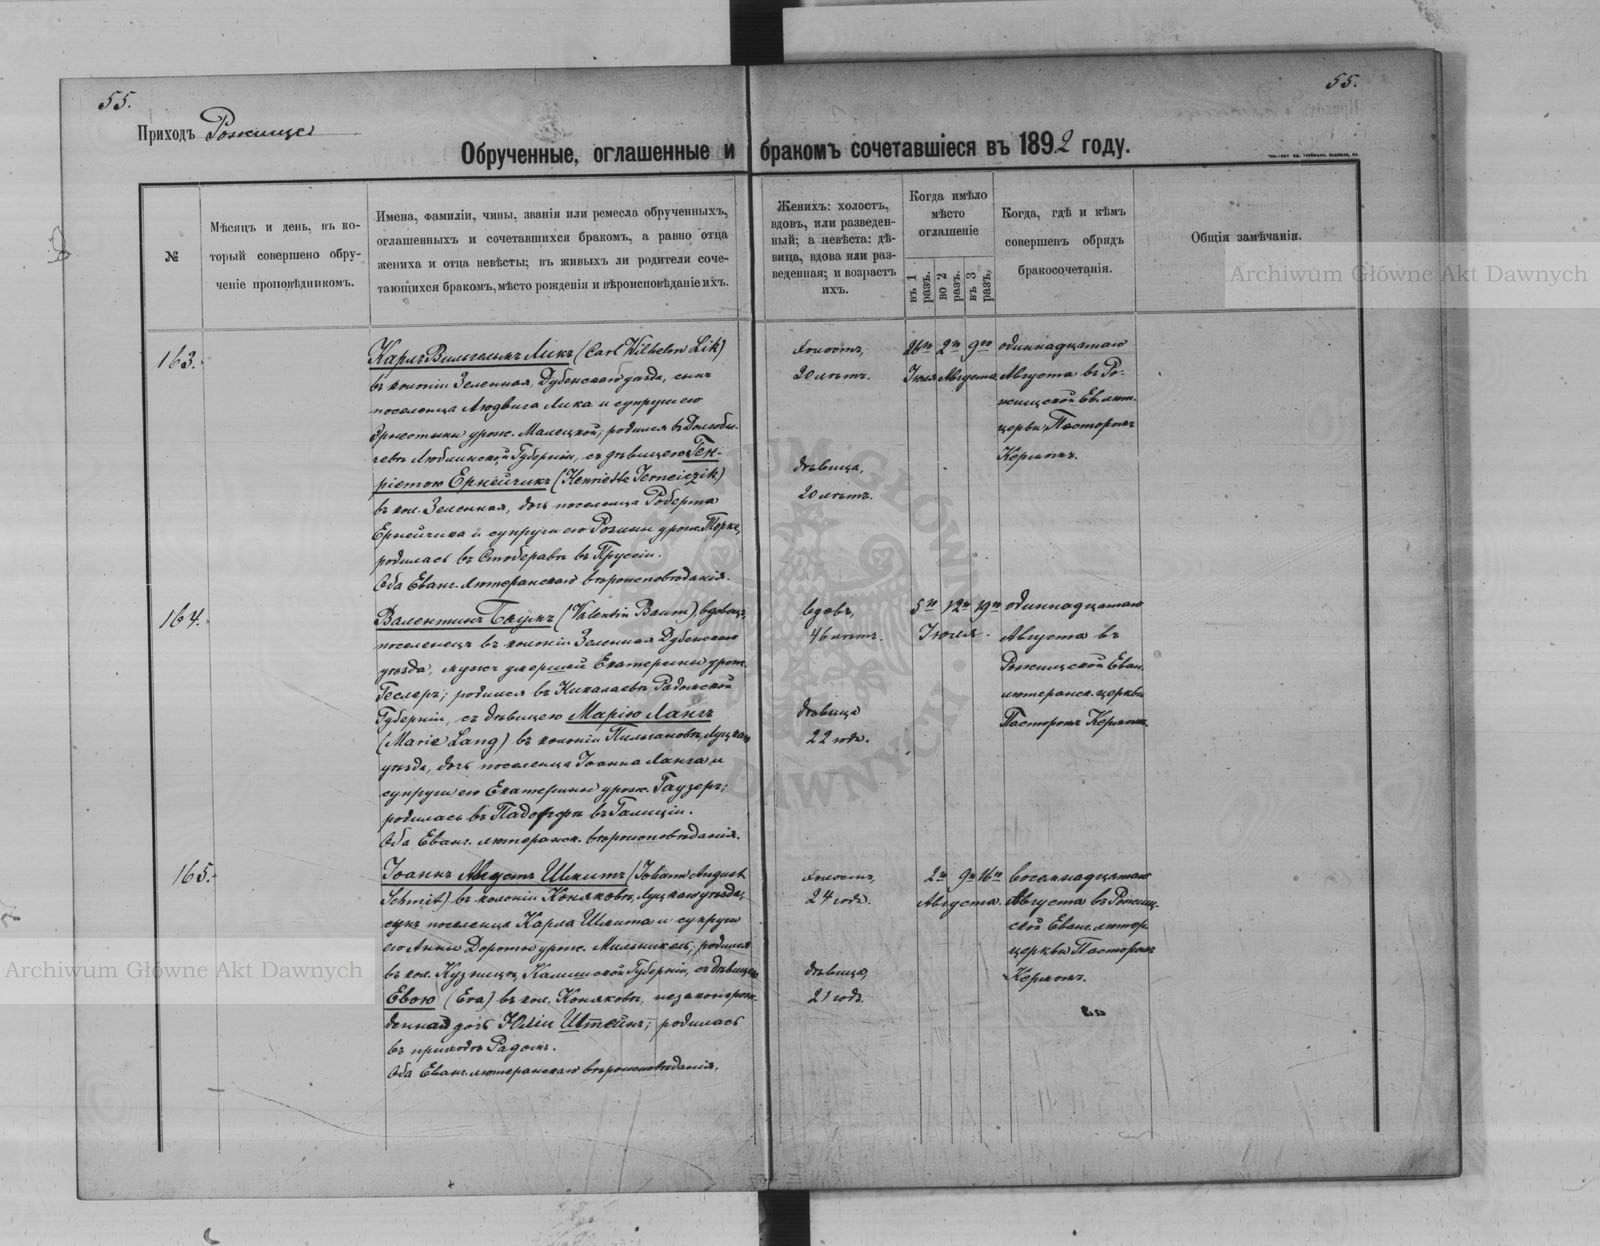 55.
55.
Приходъ Рожище
Обрученные, оглашенные и бракомъ сочетавшіеся въ 1892 году.
№
Мѣсяцъ и день, въ ко-
торый совершено обру-
ченіе проповѣдникомъ.
Имена, фамиліи, чины, званія или ремесла обрученныхъ,
оглашенныхъ и сочетавшихся бракомъ, а равно отца
жениха и отца невѣсты; въ живыхъ ли родители соче-
тающихся бракомъ, мѣсто рожденія и вѣроисповѣданіе ихъ.
Женихъ: холостъ,
вдовъ, или разведен-
ный; а невѣста: дѣ-
вица, вдова или раз-
веденная; и возрастъ
ихъ.
Когда имѣло
мѣсто
оглашеніе
въ 1 разъ.
во 2 разъ.
въ 3 разъ.
Когда, гдѣ и кѣмъ
совершенъ обрядъ
бракосочетанія.
Общія замѣчанія.
163.
Карлъ Вильгельмъ Ликъ (Carl Wilhelm Lik)
въ колоніи Зеленная, Дубенскаго уѣзда, сынъ
поселенца Людвига Лика и супруги его
Эрнестины урож. Малецкой; родился въ
Люблинской Губерніи, съ дѣвицею Ген-
ріетою Ернейчикъ (Henriette Jerneiczik)
въ кол. Зеленная, дочь поселенца Роберта
Ернейчика и супруги его Розины урож. Торке,
родилась въ Стоберавѣ въ Пруссіи.
Оба Еванг. Лютеранскаго вѣроисповѣданія.
холостъ,
20 лѣтъ.
дѣвица,
20 лѣтъ.
26го 2го 9го
Іюля Августа
одиннадцатаго
Августа въ Ро-
жищской Ев. лют.
церкви, Пасторомъ
Керномъ.
164.
Валентинъ Баумъ (Valentin Baum), вдовецъ,
поселенецъ въ колоніи Зеленная Дубенскаго
уѣзда, мужъ умершей Екатерины урож.
Геслеръ; родился въ Николаевѣ, Радомской
Губерніи, съ дѣвицею Марію Лангъ
(Marie Lang) въ колоніи Пильгановѣ, Луцкаго
уѣзда, дочь поселенца Іоанна Ланга и
супруги его Екатерины урож. Гаузеръ;
родилась въ Падорфѣ въ Галиціи.
Оба Еванг. лютеранск. вѣроисповѣданія.
вдовъ,
46 лѣтъ.
дѣвица
22 года.
5го 12го 19го
Іюля.
одиннадцатаго
Августа въ
Рожищской Еван.
лютеранск. церкви
Пасторомъ Керномъ.
165.
Іоаннъ Августъ Шмитъ (Johann August
Schmit) въ колоніи Коняковѣ, Луцкаго уѣзда,
сынъ поселенца Карла Шмита и супруги
его Анны Доротеи урож. Мильникель; родился
въ кол. Кузницѣ, Калишской Губерніи, съ дѣвицею
Евою (Eva) въ кол. Коняковѣ, незаконорож-
денная дочь Юліи Штейнъ; родилась
въ приходѣ Радомъ.
Оба Еванг. лютеранскаго вѣроисповѣданія.
холостъ,
24 года.
дѣвица,
21 года.
2го 9го 16го
Августа.
восемнадцатаго
Августа въ Рожищ-
ской Еванг. лютер.
церкви Пасторомъ
Керномъ.
Archiwum Główne Akt Dawnych
Archiwum Główne Akt Dawnych